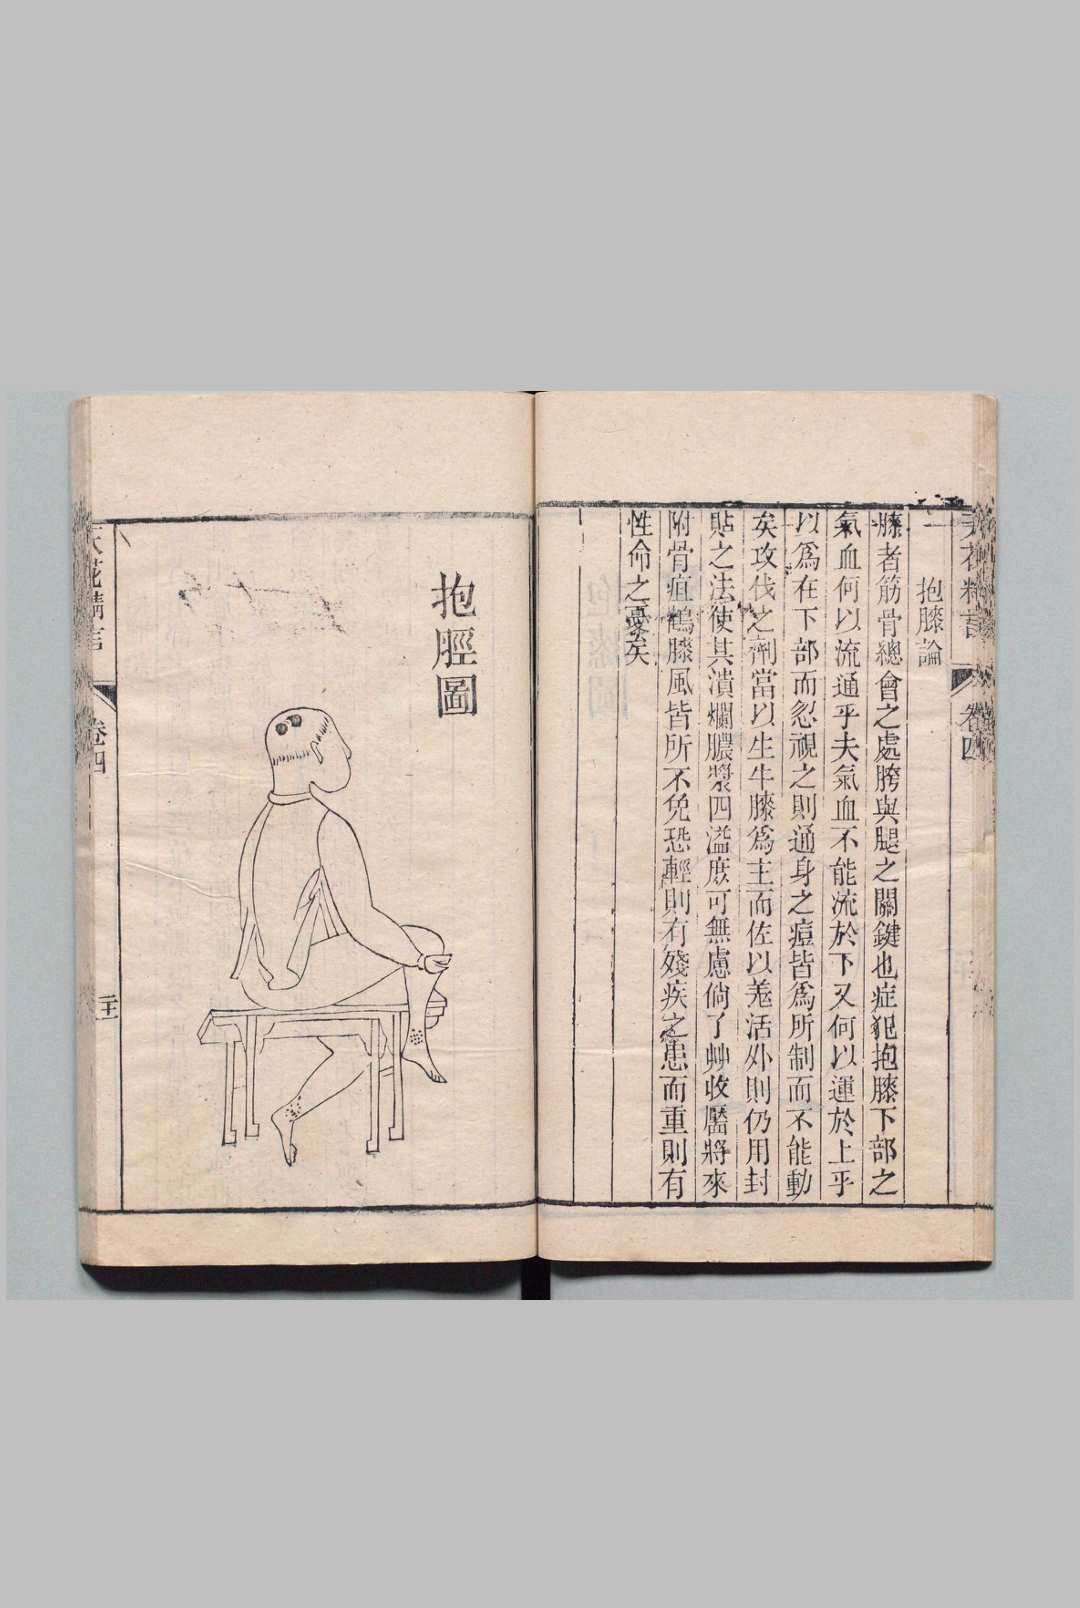 天花精言
卷四
抱膝論
膝者筋骨總會之處胯與腿之關鍵也症犯抱膝下部之
氣血何以流通乎夫氣血不能流於下又何以運於上乎
以爲在下部而忽視之則通身之痘皆爲所制而不能動
矣攻伐之劑當以生牛膝爲主而佐以羗活外則仍用封
貼之法使其潰爛膿漿四溢庶可無慮倘了艸收靨將來
附骨疽鶴膝風皆所不免恐輕則有殘疾之患而重則有
性命之憂矣
抱脛圖
天花精言
卷四
二十